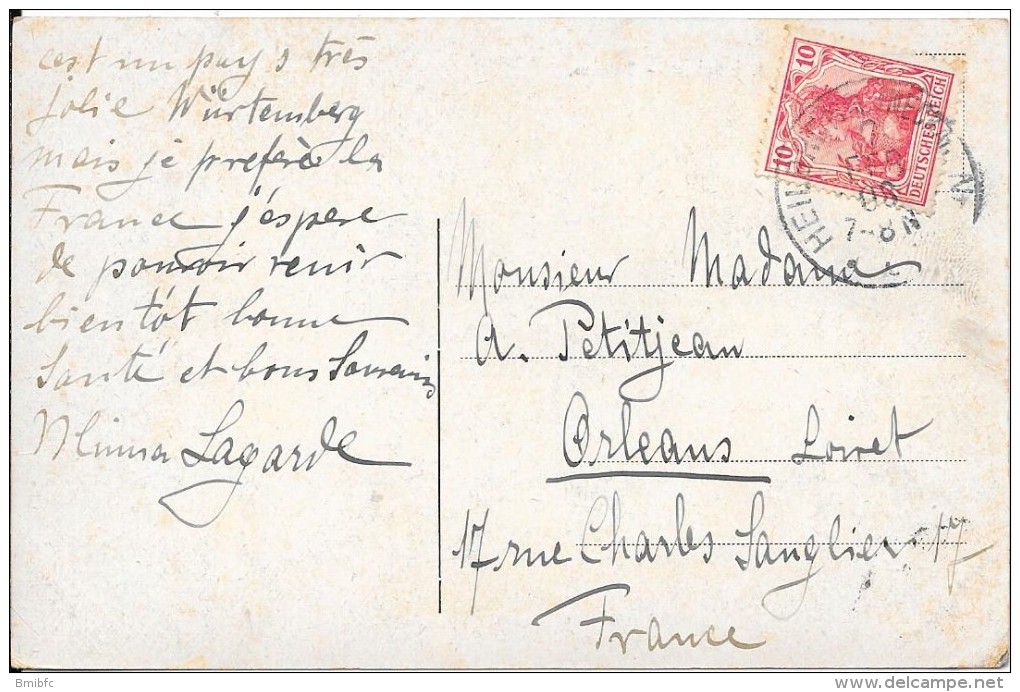 c'est un pays très
jolie Würtemberg
mais je prefère la
France j'espere
de pouvoir venir
bientôt bonne
Santé et bons Souvenirs
Minna Lagarde
10
10
DEUTSCHES REICH
7-8 N
Monsieur Madame
A. Petitjean
Orleans Loiret
17 rue Charles Sanglier 17
France
Bmibfc
www.delcampe.net